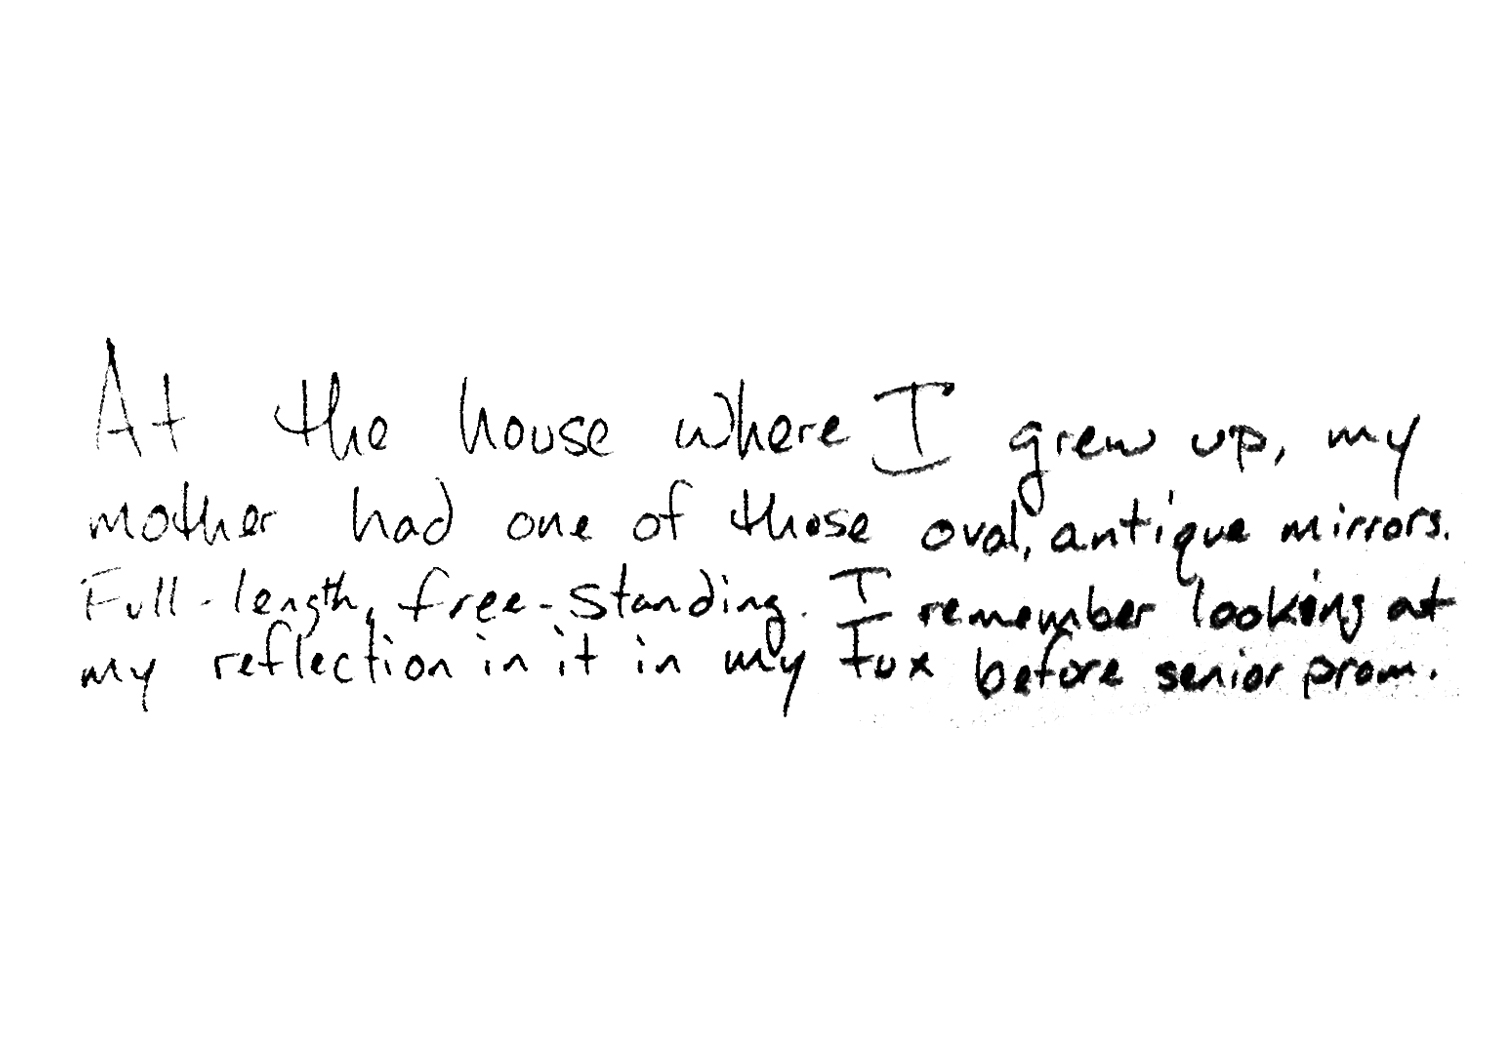 At the house where I grew up, my
mother had one of those oval, antique mirrors.
Full-length, free-standing. I remember looking at
my reflection in it in my tux before senior prom.